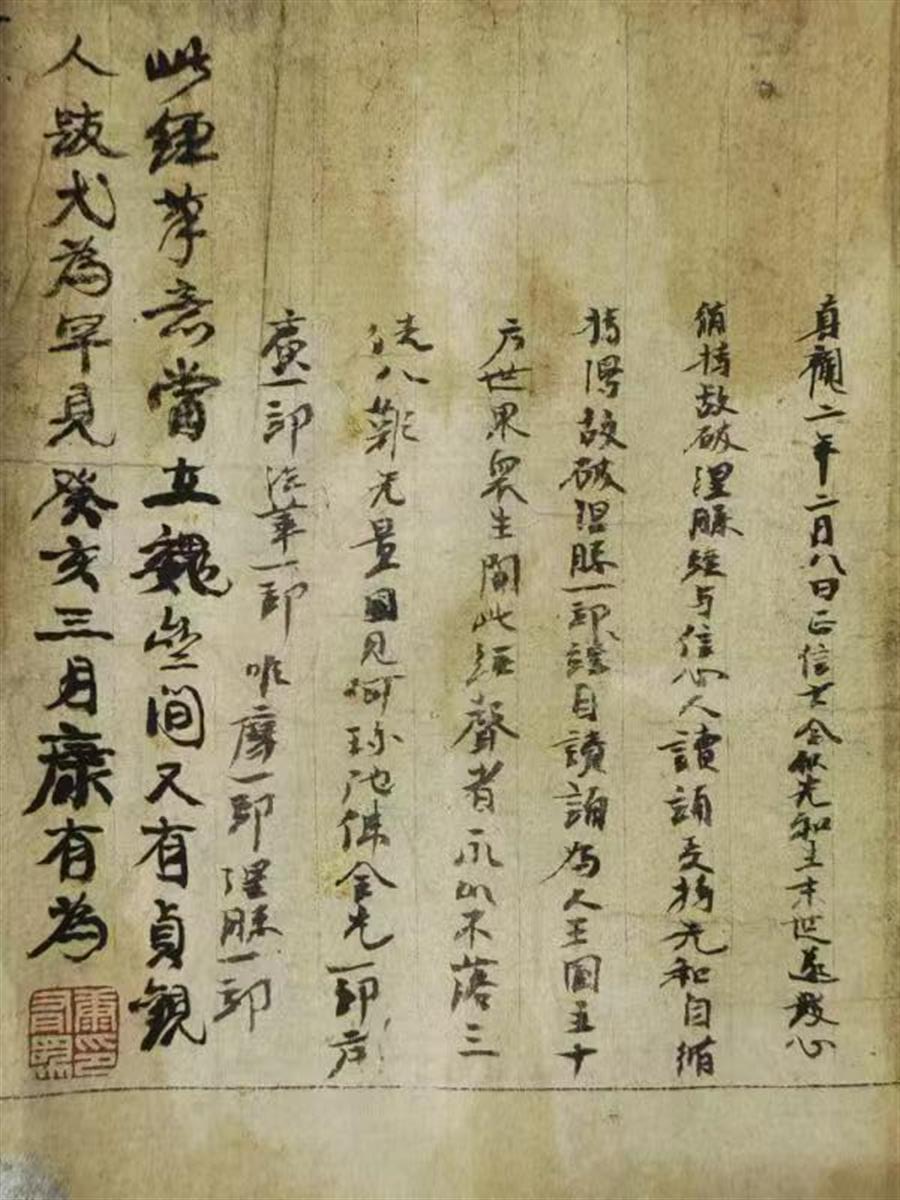 真觀二年二月八日正信士令狐光和士末世遂發心
脩持故破涅脒經与信心人讀誦受持光和自脩
持得故破涅脒一部讀自讀誦为人王國五十
方世界衆生聞此經聲者永以不落三
八難无量囯見阿弥池佛金光一部
廣一部法華一部唯摩一部涅脒一部
此經筆意當立魏無间又有貞觀
人跋尤為罕見癸亥三月康有為
康有為印